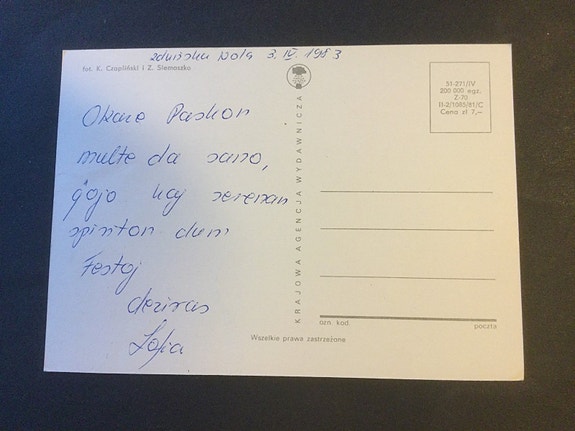 Zduńska Wola 3.IV.1983
fot. K. Czapliński i Z. Siemaszko
Okaze Paskon
multe da sano,
gojo kaj serenan
spiriton dum
Festoj
deziras
Zofia
KRAJOWA AGENCJA WYDAWNICZA
51-271/IV
200 000 egz.
Z-70
II-2/1085/81/C
Cena zł 7,—
ozn. kod. poczta
Wszelkie prawa zastrzeżone